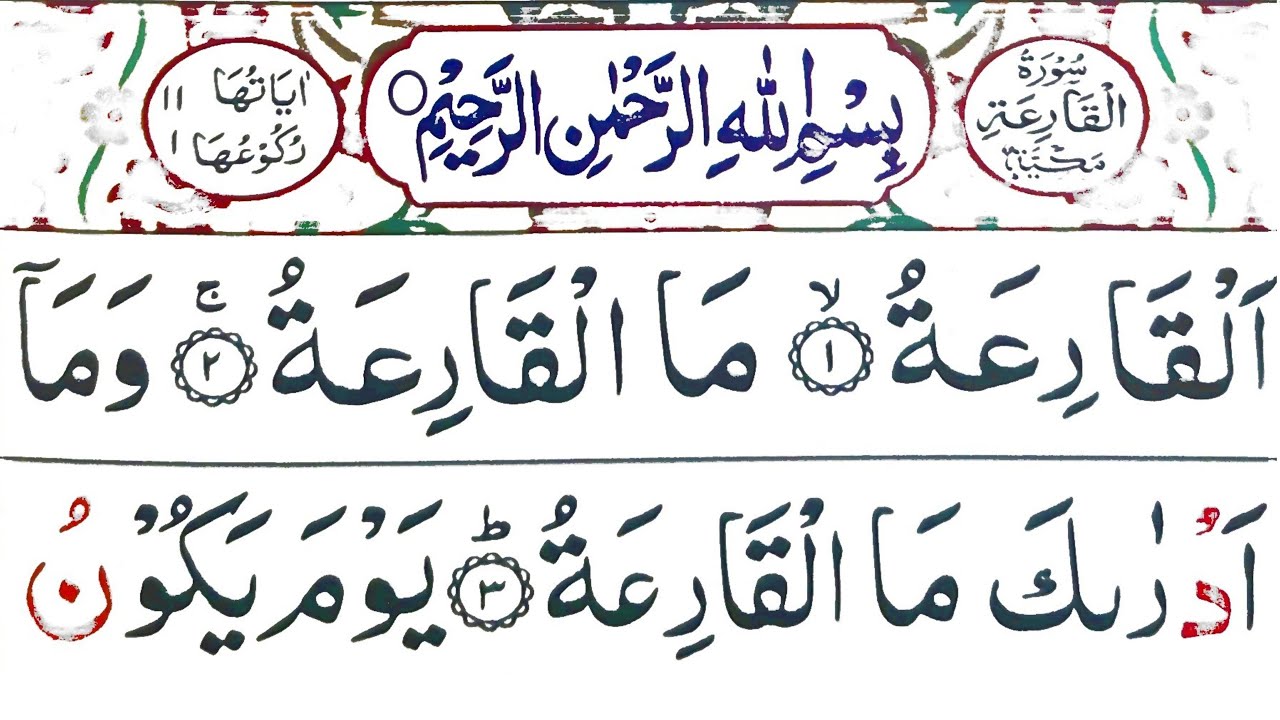 سُوْرَةُ
الْقَارِعَةِ
مَكِّيَّةٌ
بِسْمِ اللّٰهِ الرَّحْمٰنِ الرَّحِيْمِ
اٰيَاتُهَا ١١
رُكُوْعُهَا ١
اَلْقَارِعَةُ ۙ﴿١﴾ مَا الْقَارِعَةُ ۚ﴿٢﴾ وَمَاۤ
اَدْرٰىكَ مَا الْقَارِعَةُ ؕ﴿٣﴾ يَوْمَ يَكُوْنُ